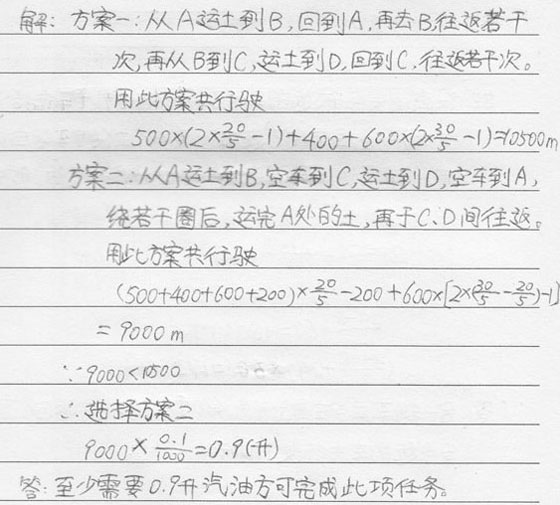 解: 方案一:从A运土到B,回到A,再去B,往返若干
次,再从B到C,运土到D,回到C.往返若干次。
用此方案共行驶
500×(2×20/5-1)+400+600×(2×30/5-1)=10500m
方案二:从A运土到B,空车到C,运土到D,空车到A,
绕若干圈后,运完A处的土,再于C.D间往返。
用此方案共行驶
(500+400+600+200)×20/5-200+600×[2×(30/5-20/5)-1]
=9000m
∵9000<10500
∴选择方案二
9000×0.1/1000=0.9(升)
答:至少需要0.9升汽油方可完成此项任务。